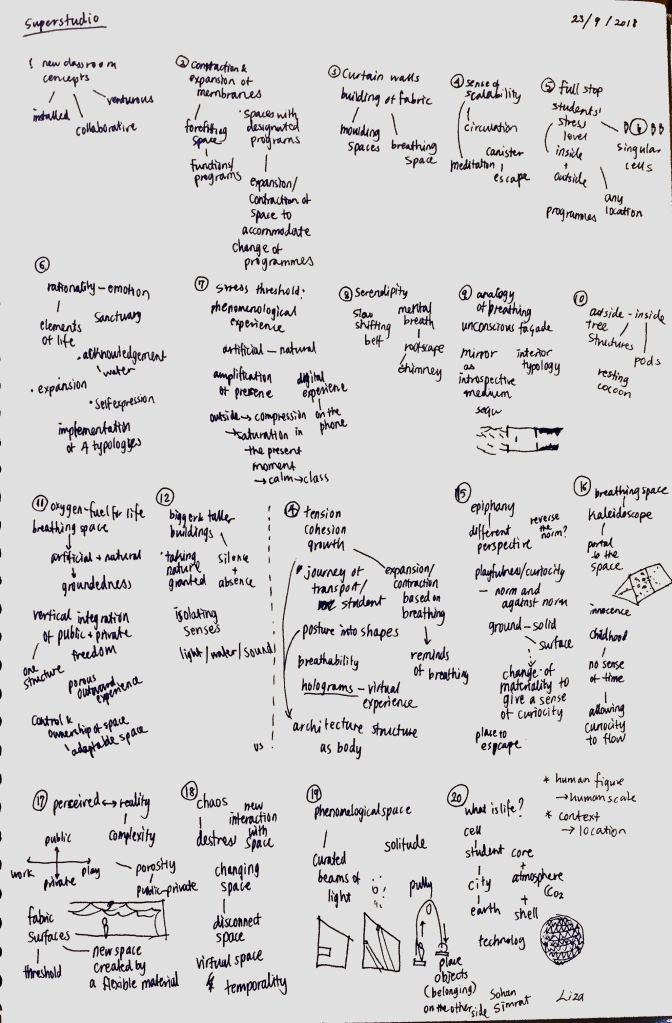 Superstudio
23/9/2018
1 new classroom
concepts
installed
venturous
collaborative
② contraction &
expansion of
membranes
forefitting
space
functions/
programs
• spaces with
designated
programs
expansion/
contraction of
space to
accommodate
change of
programmes
③ Curtain walls
building of fabric
moulding
spaces
breathing
space
④ sense of
scalability
circulation
canister
meditation
escape
⑤ full stop
students'
stress
level
inside
+
outside
programmes
singular
cells
any
location
⑥
rationality - emotion
elements
of life
Sanctuary
• acknowledgement
water
• expansion
• self expression
implementation
of A typologyes
⑦ stress threshold:
phenomenological
experience
artificial - natural
amplification
of presence
digital
experience
on the
phone
outside → compression
→ saturation in
the present
moment
→ calm → class
⑧ Serendipity
slow
shifting
belt
mental
breath
rootscape
chimney
⑨ analogy
of breathing
unconscious façade
mirror
as
introspective
medium
interior
typology
⑩
outside - inside
tree
structures
pods
resting
cocoon
⑪ oxygen - fuel for life
breathing space
artificial + natural
groundedness
vertical integration
of public + private
freedom
one
structure
porous
outward experience
control &
ownership of space
adaptable space
⑫
bigger & taller
buildings
• taking
nature
granted
silence
+
absence
isolating
senses
light/water/sound
vs
tension
cohesion
growth
journey of
transport/
student
expansion/
contraction
based on
breathing
posture into shapes
reminds
of breathing
breathability
holograms - virtual
experience
architecture structure
as body
⑮
epiphany
different
perspective
reverse
the
norm?
playfulness/curiocity
- norm and
against norm
ground - solid
surface
change of
materiality to
give a sense
of curiocity
place to
escape
⑯
breathing space
kaleidoscope
portal
to the
space
innocence
childhood
no sense
of time
allowing
curiocity
to flow
⑰ perceived ↔ reality
complexity
public
work
play
private
porosity
public-private
fabric
surfaces
threshold
new space
created by
a flexible material
⑱ chaos
destress
new
interaction
with
space
changing
space
disconnect
space
virtual space
temporality
⑲
phenomelogical space
solitude
curated
beams of
light
pully
place
objects
(belonging)
on the other
side
⑳ what is life?
cell
student
city
earth
core
+
atmosphere
CO2
+
shell
technolog
* human figure
→ human scale
* context
→ location
Sohan
Simrat
Liza